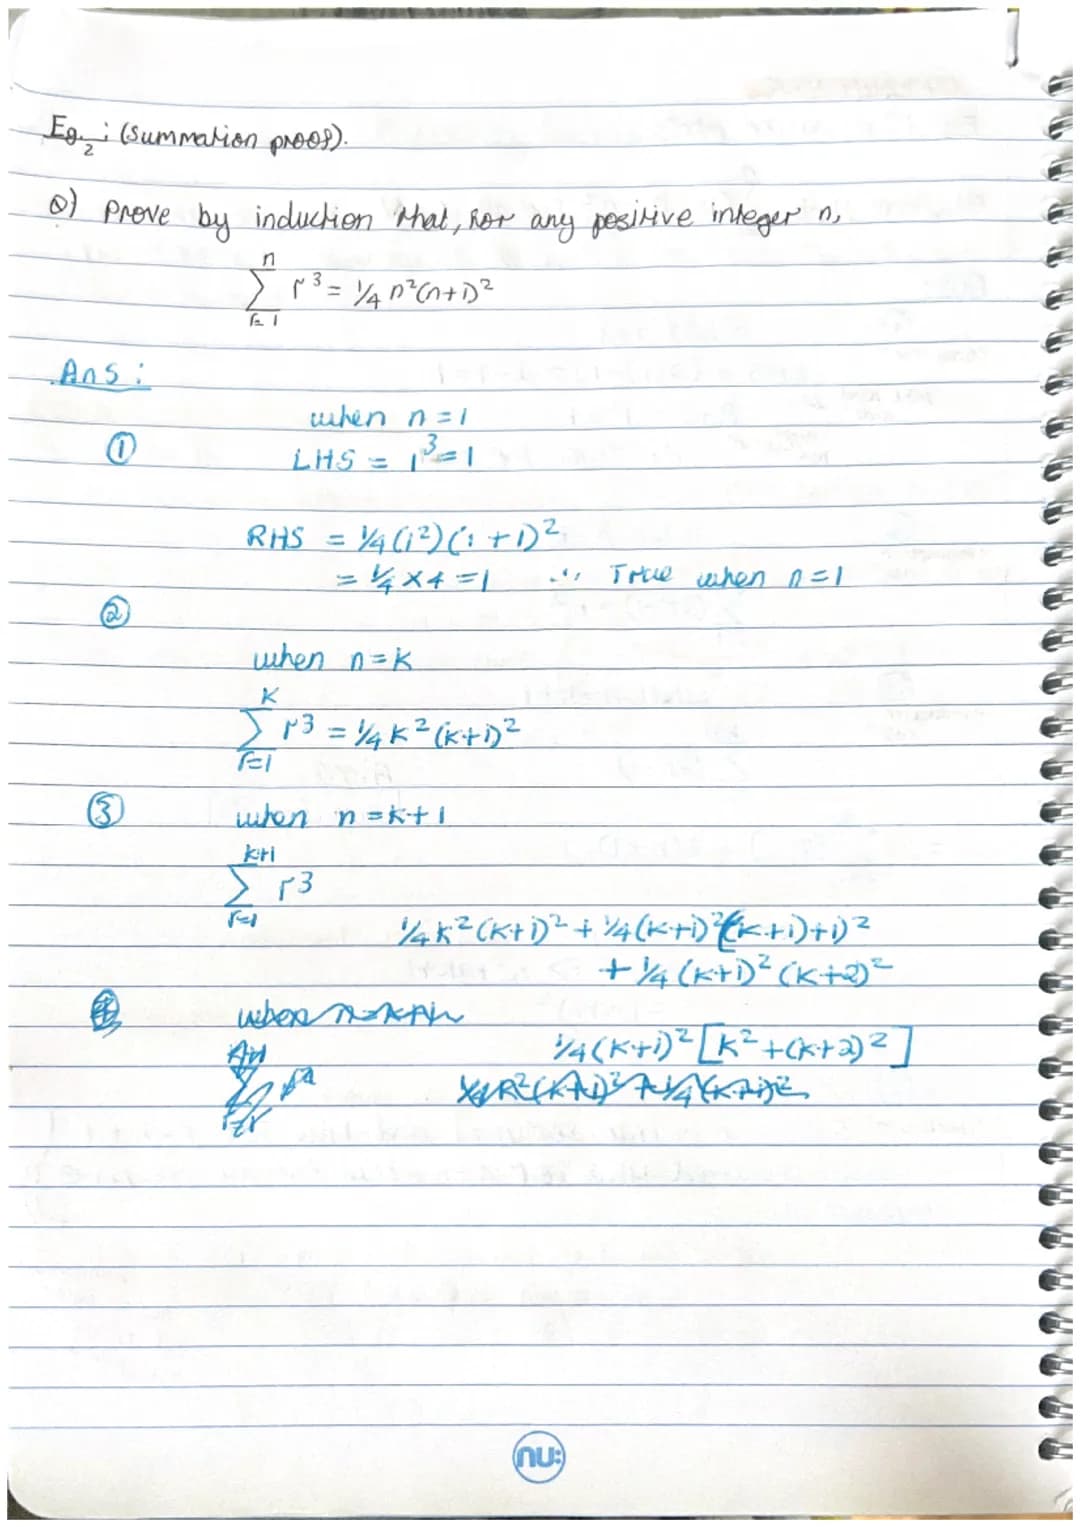 Eg. 2 : (Summation proof).
Q) Prove by induction that, for any positive integer n,
n
∑ r³ = 1/4 n²(n+1)²
r=1
Ans :
when n=1
① LHS = 1³ = 1
RHS = 1/4 (1²)(1+1)²
= 1/4 × 4 = 1 ∴ True when n=1
②
when n=k
k
∑ r³ = 1/4 k²(k+1)²
r=1
③ when n=k+1
k+1
∑ r³
r=1
1/4 k²(k+1)² + 1/4 (k+1)²((k+1)+1)²
+ 1/4 (k+1)² (k+2)²
1/4 (k+1)² [k² + (k+2)²]
nu: